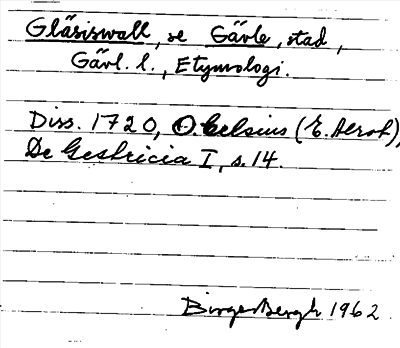 Gläsiswall, se Gävle, stad,
Gävl. l., Etymologi.
Diss. 1720, O. Celsius (E. Aeroh),
De Gestricia I, s. 14.
Birger Bergh 1962